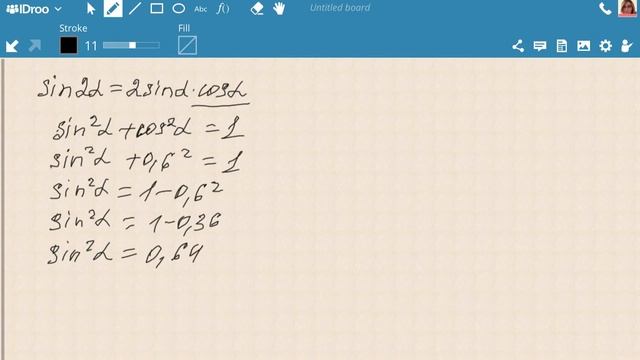 IDroo
Abc
f()
Untitled board
Stroke
Fill
11
sin2α=2sinα·cosα
sin²α+cos²α=1
sin²α+0,6²=1
sin²α=1-0,6²
sin²α=1-0,36
sin²α=0,64